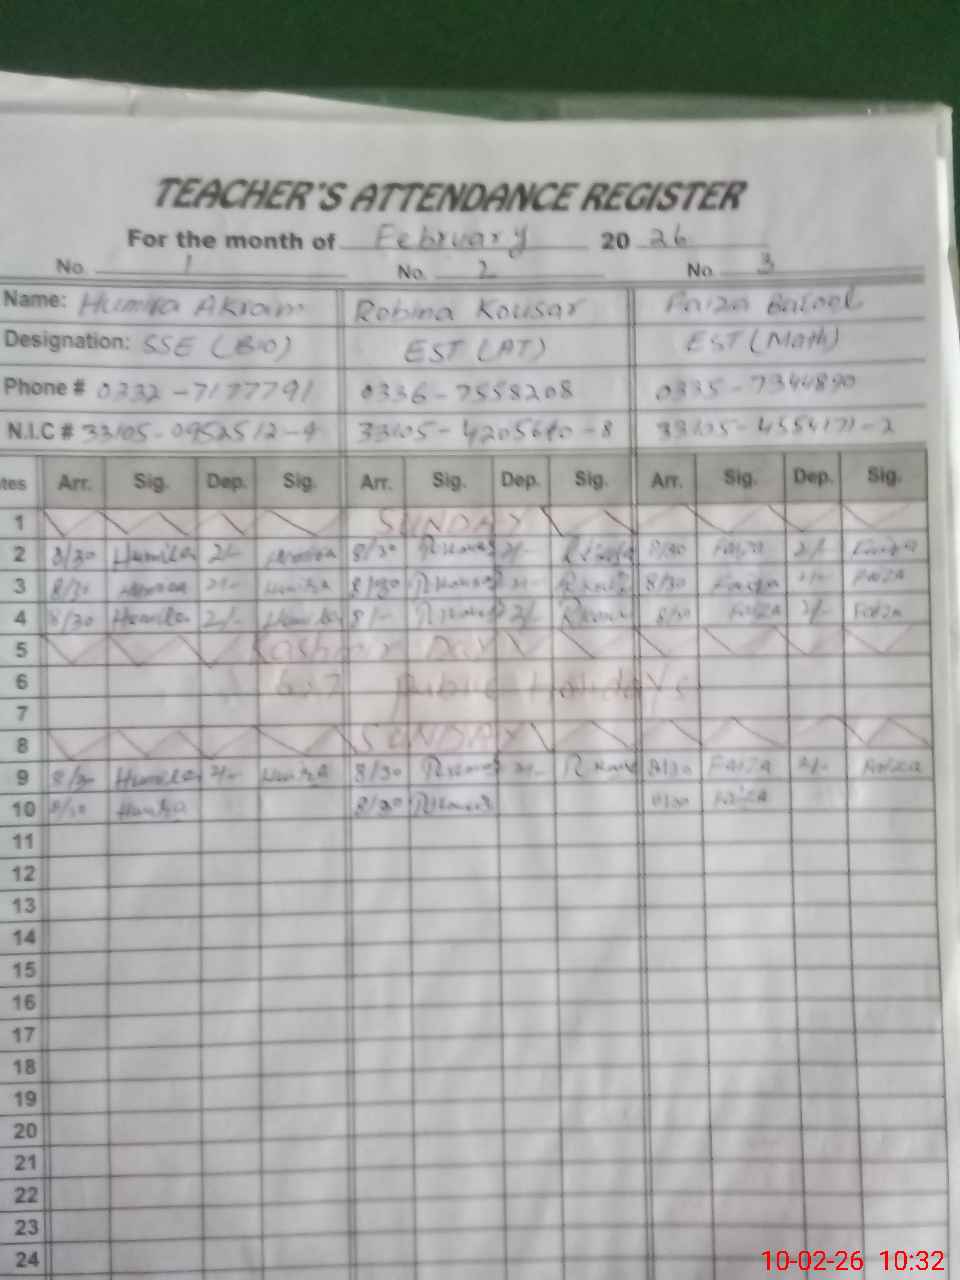 TEACHER'S ATTENDANCE REGISTER
For the month of February 20 26
No. 1 No. 2 No. 3
Name: Humira Akram Robina Kousar Faiza Batool
Designation: SSE (Bio) EST (AT) EST (Math)
Phone # 0332-7177791 0336-7558208 0335-7344890
N.I.C # 33105-0952512-4 33105-4205640-8 33105-4554171-2
tes Arr. Sig. Dep. Sig. Arr. Sig. Dep. Sig. Arr. Sig. Dep. Sig.
1 SUNDAY
2 8/30 Humira 2/- Humira 8/30 RKousar 2/- RKousar 8/30 Faiza 2/- Faiza
3 8/30 Humira 2/- Humira 8/30 RKousar 2/- RKousar 8/30 Faiza 2/- Faiza
4 8/30 Humira 2/- Humira 8/- RKousar 2/- RKousar 8/30 Faiza 2/- FaiZa
5 Kashmir Day
6 6,7 Public Holidays
7
8 SUNDAY
9 8/30 Humira 2/- Humira 8/30 RKousar 2/- RKousar 8/30 FAIZA 2/- Faiza
10 8/30 Humira 8/30 RKousar 8/30 FaiZA
11
12
13
14
15
16
17
18
19
20
21
22
23
24
10-02-26 10:32